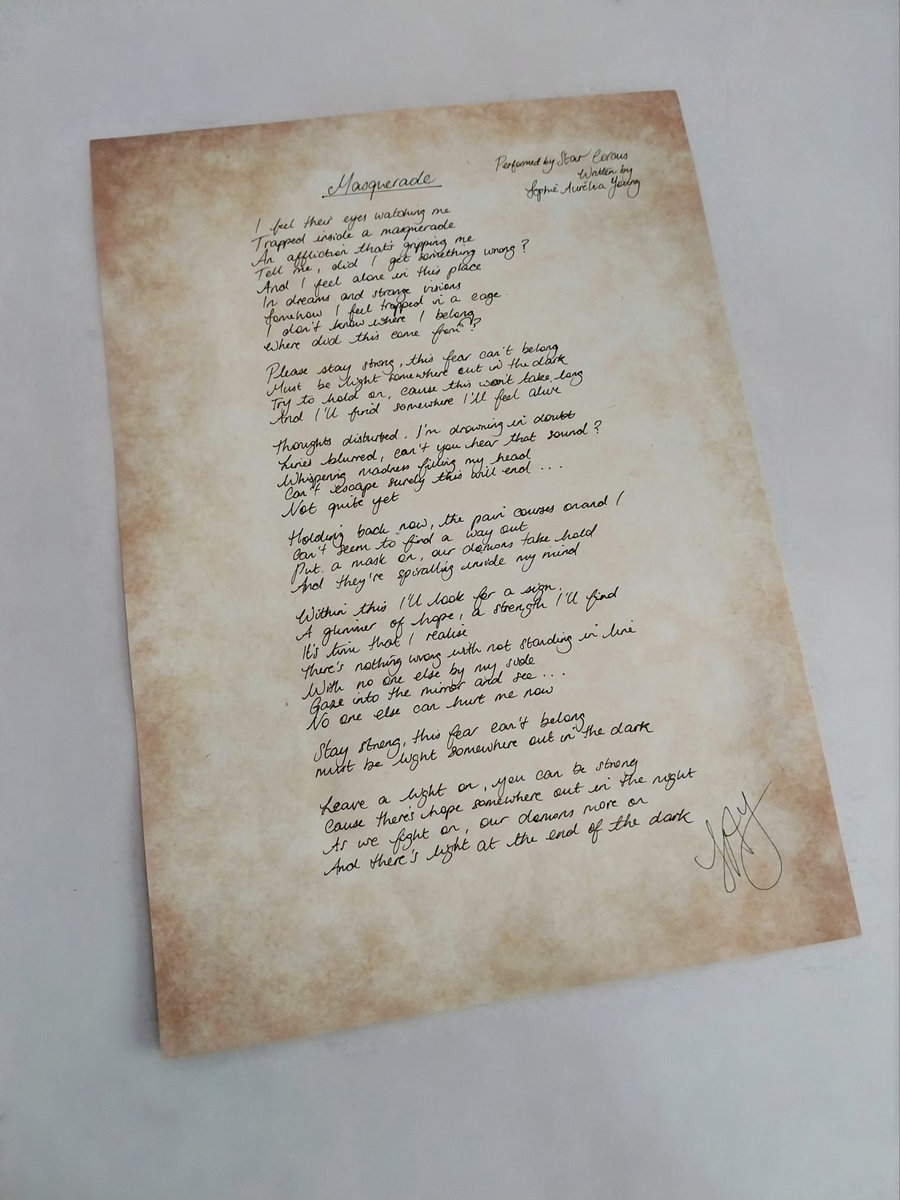 Masquerade
Performed by Star Circus
Written by
Sophie Aurélia Young
I feel their eyes watching me
Trapped inside a masquerade
An affliction that's gripping me
Tell me, did I get something wrong?
And I feel alone in this place
In dreams and strange visions
Somehow I feel trapped in a cage.
I don't know where I belong
Where did this come from?
Please stay strong, this fear can't belong
Must be light somewhere out in the dark
Try to hold on, cause this won't take long
And I'll find somewhere I'll feel alive
Thoughts disturbed, I'm drowning in doubt
Lines blurred, can't you hear that sound?
Whispering madness filling my head
Can't escape surely this will end ...
Not quite yet
Holding back now, the pain courses around /
Can't seem to find a way out
Put a mask on, our demons take hold
And they're spiralling inside my mind
Within this I'll look for a sign.
A glimmer of hope, a strength I'll find
It's time that I realise
There's nothing wrong with not standing in line
With no one else by my side
Gaze into the mirror and see ...
No one else can hurt me now
Stay strong, this fear can't belong
must be light somewhere out in the dark
Leave a light on, you can be strong
Cause there's hope somewhere out in the night
As we fight on, our demons move on
And there's light at the end of the dark
SAY